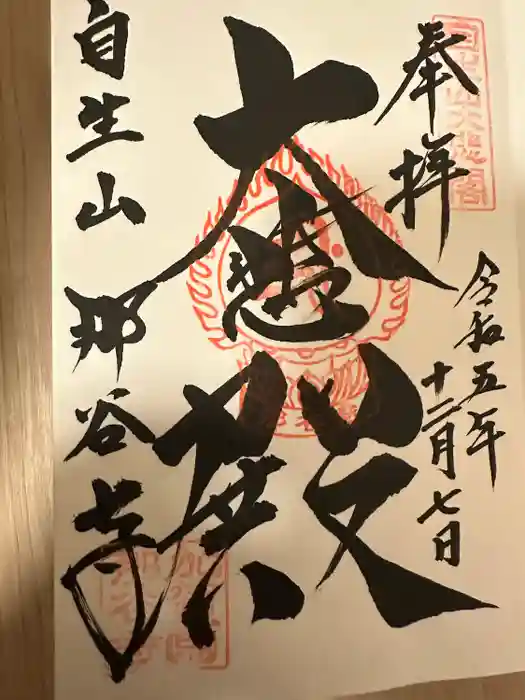 奉拝
令和五年
十二月七日
大悲殿
自生山那谷寺